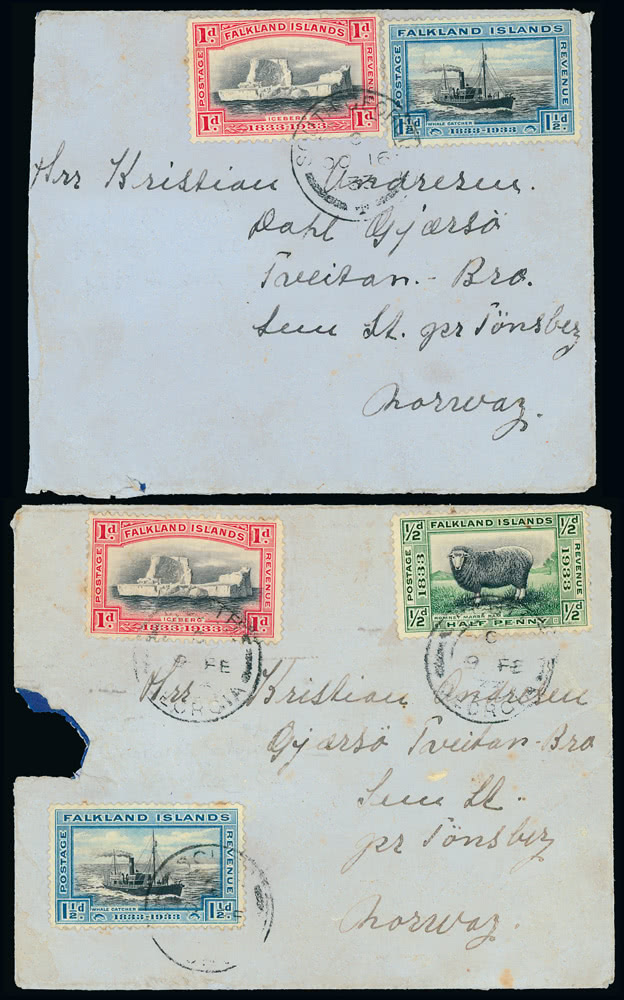 1d. FALKLAND ISLANDS 1d.
POSTAGE REVENUE
ICEBERG
1d. 1833-1933 1d.
FALKLAND ISLANDS
POSTAGE REVENUE
WHALE CATCHER
1½d. 1833-1933 1½d.
SOUTH
OC 16
33
Hrr Kristian Andresen.
Dahl Gjærsö
Tveitan - Bro.
Sem St. pr Tönsberg
Norway.
1d. FALKLAND ISLANDS 1d.
POSTAGE REVENUE
ICEBERG
1d. 1833-1933 1d.
½d FALKLAND ISLANDS ½d
POSTAGE 1833 1933 REVENUE
ROMNEY MARSH
½d HALF PENNY ½d
9 FE
GEORGIA
C
9 FE
33
GEORGIA
Hrr Kristian Andresen
Gjærsö Tveitan - Bro
Sem St.
pr Tönsberg
Norway.
FALKLAND ISLANDS
POSTAGE REVENUE
WHALE CATCHER
1½d. 1833-1933 1½d.
SOU